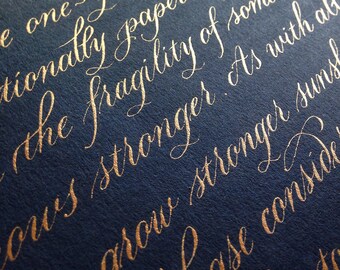 e one-
tionally paper
the fragility of some
ows stronger. As with all
grow stronger sunsh
ase conside